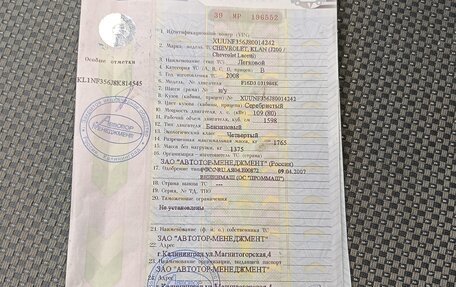 39 МР 196552
Особые отметки
1. Идентификационный номер (VIN) XUUNF356J80014242
2. Марка, модель ТС CHEVROLET, KLAN (J200 /
Chevrolet Lacetti)
3. Наименование (тип ТС) Легковой
4. Категория ТС (А, В, С, D, прицеп) B
5. Год изготовления ТС 2008
6. Модель, № двигателя
7. Шасси (рама) № н/у
8. Кузов (кабина, прицеп) № XUUNF356J80014242
9. Цвет кузова (кабины, прицепа) Серебристый
10. Мощность двигателя, л. с. (кВт) 109 (80)
11. Рабочий объем двигателя, куб. см 1598
12. Тип двигателя Бензиновый
13. Экологический класс Четвертый
14. Разрешенная максимальная масса, кг 1765
15. Масса без нагрузки, кг 1375
16. Организация - изготовитель ТС (страна)
ЗАО "АВТОТОР-МЕНЕДЖМЕНТ" (Россия)
17. Одобрение типа ТС № 09.04.2007
18. Страна вывоза ТС ---
19. Серия, № ТД, ТПО
20. Таможенные ограничения
Не установлены
21. Наименование (ф. и. о.) собственника ТС
ЗАО "АВТОТОР-МЕНЕДЖМЕНТ"
22. Адрес
г.Калининград ул.Магнитогорская,4
23. Наименование организации, выдавшей паспорт
ЗАО "АВТОТОР-МЕНЕДЖМЕНТ"
24. Адрес
г.Калининград ул.Магнитогорская,4
KL1NF356J8K814545
АВТОТОР
МЕНЕДЖМЕНТ